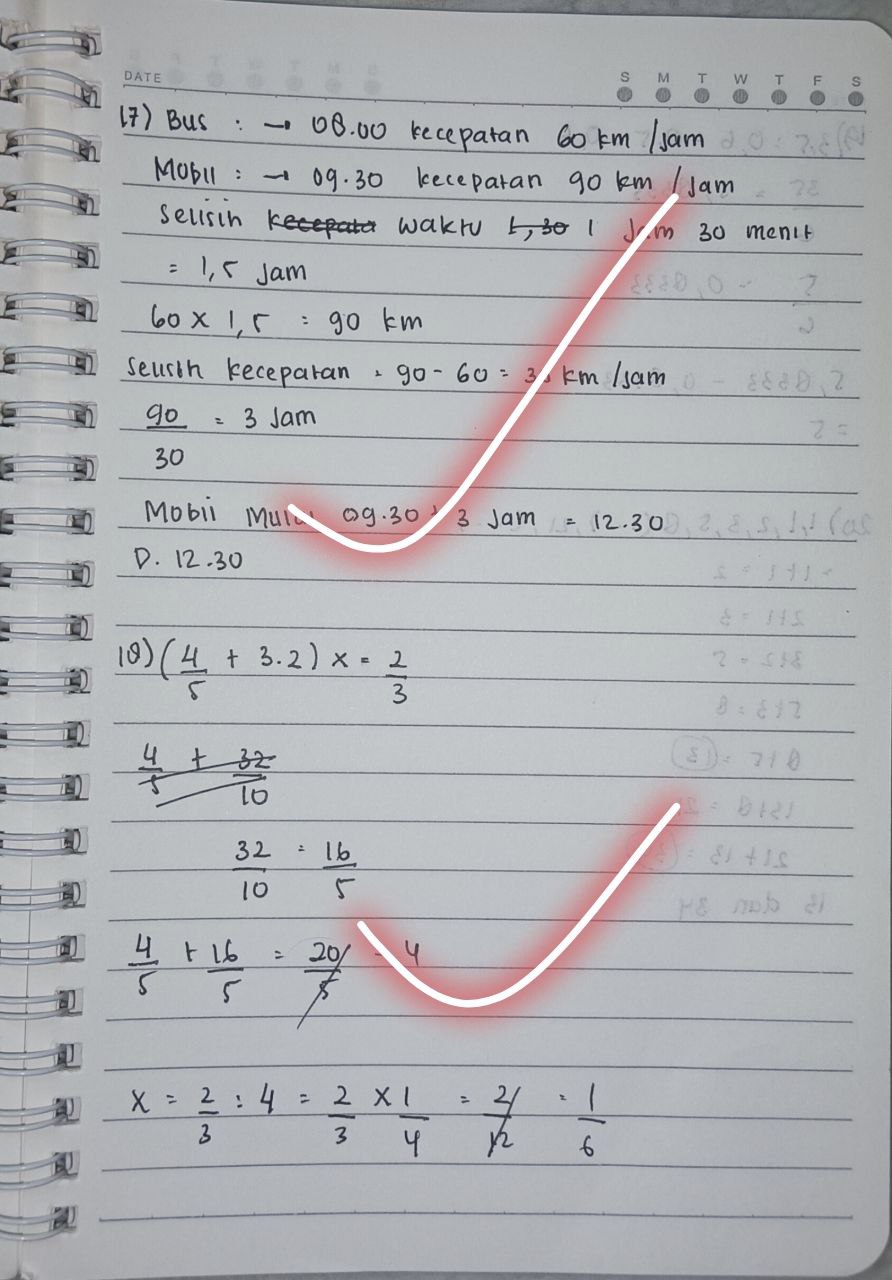 DATE S M T W T F S
17) Bus : → 08.00 kecepatan 60 km /jam
Mobil : → 09.30 kecepatan 90 km / Jam
Selisih kecepata waktu 1,30 1 Jam 30 menit
= 1,5 Jam
60 x 1,5 = 90 km
Selisih kecepatan = 90 - 60 = 30 km /jam
90/30 = 3 Jam
Mobil Mulai 09.30 + 3 Jam = 12.30
D. 12.30
18) (4/5 + 3.2) x = 2/3
4/5 + 32/10
32/10 = 16/5
4/5 + 16/5 = 20/5 = 4
x = 2/3 : 4 = 2/3 x 1/4 = 2/12 = 1/6